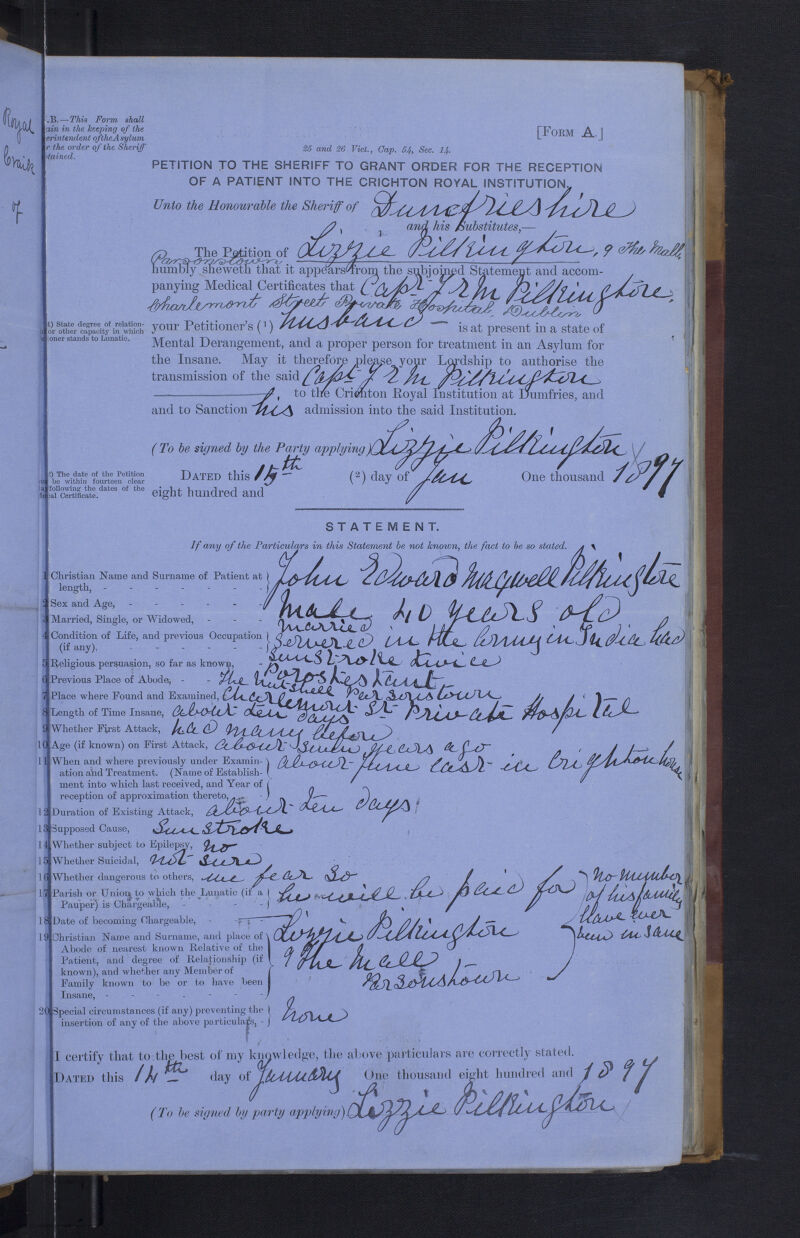 Royal
Craik
of
.B.—This Form shall
ain in the keeping of the
erintendent of the Asylum
r the order of the Sheriff
tained.
[FORM A.]
25 and 26 Vict., Cap. 54, Sec. 14.
PETITION TO THE SHERIFF TO GRANT ORDER FOR THE RECEPTION
OF A PATIENT INTO THE CRICHTON ROYAL INSTITUTION.
Unto the Honourable the Sheriff of Dumfrieshire
and his Substitutes,—
The Petition of Lizzie Pilkington, 9 The Mall,
Parsonstown
humbly sheweth that it appears from the subjoined Statement and accom-
panying Medical Certificates that Capt J E M Pilkington,
Charlemont Street Private Hospital, Dublin
1) State degree of relation-
or other capacity in which
ioner stands to Lunatic.
your Petitioner's (1) husband — is at present in a state of
Mental Derangement, and a proper person for treatment in an Asylum for
the Insane. May it therefore please your Lordship to authorise the
transmission of the said Capt J E M Pilkington
to the Crichton Royal Institution at Dumfries, and
and to Sanction his admission into the said Institution.
(To be signed by the Party applying) Lizzie Pilkington
2) The date of the Petition
be within fourteen clear
following the dates of the
al Certificate.
DATED this 14th (2) day of Jan One thousand 1897
eight hundred and
STATEMENT.
If any of the Particulars in this Statement be not known, the fact to be so stated.
1 Christian Name and Surname of Patient at length, - John Edward Maxwell Pilkington
2 Sex and Age, - Male 40 years old
3 Married, Single, or Widowed, - married
4 Condition of Life, and previous Occupation (if any). - Servered in the Army in India had
sunstroke twice
5 Religious persuasion, so far as known, - Protestant
6 Previous Place of Abode, - The Nutshell Parsonstown
7 Place where Found and Examined, Charlemont St Private Hospital
8 Length of Time Insane, about ten days
9 Whether First Attack, had many before
10 Age (if known) on First Attack, about seven years ago
11 When and where previously under Examin-
ation and Treatment. (Name of Establish-
ment into which last received, and Year of
reception of approximation thereto, - about June last in Crighton house
12 Duration of Existing Attack, about ten days
13 Supposed Cause, Sunstroke
14 Whether subject to Epilepsy, no
15 Whether Suicidal, not sure
16 Whether dangerous to others, we fear so
17 Parish or Union to which the Lunatic (if a
Pauper) is Chargeable, - he will be paid for
18 Date of becoming Chargeable, -
19 Christian Name and Surname, and place of
Abode of nearest known Relative of the
Patient, and degree of Relationship (if
known), and whether any Member of
Family known to be or to have been
Insane, -
Lizzie Pilkington
9 The Mall
Parsonstown
no member
of his family
have ever
been insane
20 Special circumstances (if any) preventing the
insertion of any of the above particulars, - None
I certify that to the best of my knowledge, the above particulars are correctly stated.
DATED this 14th day of January One thousand eight hundred and 1897
(To be signed by party applying) Lizzie Pilkington